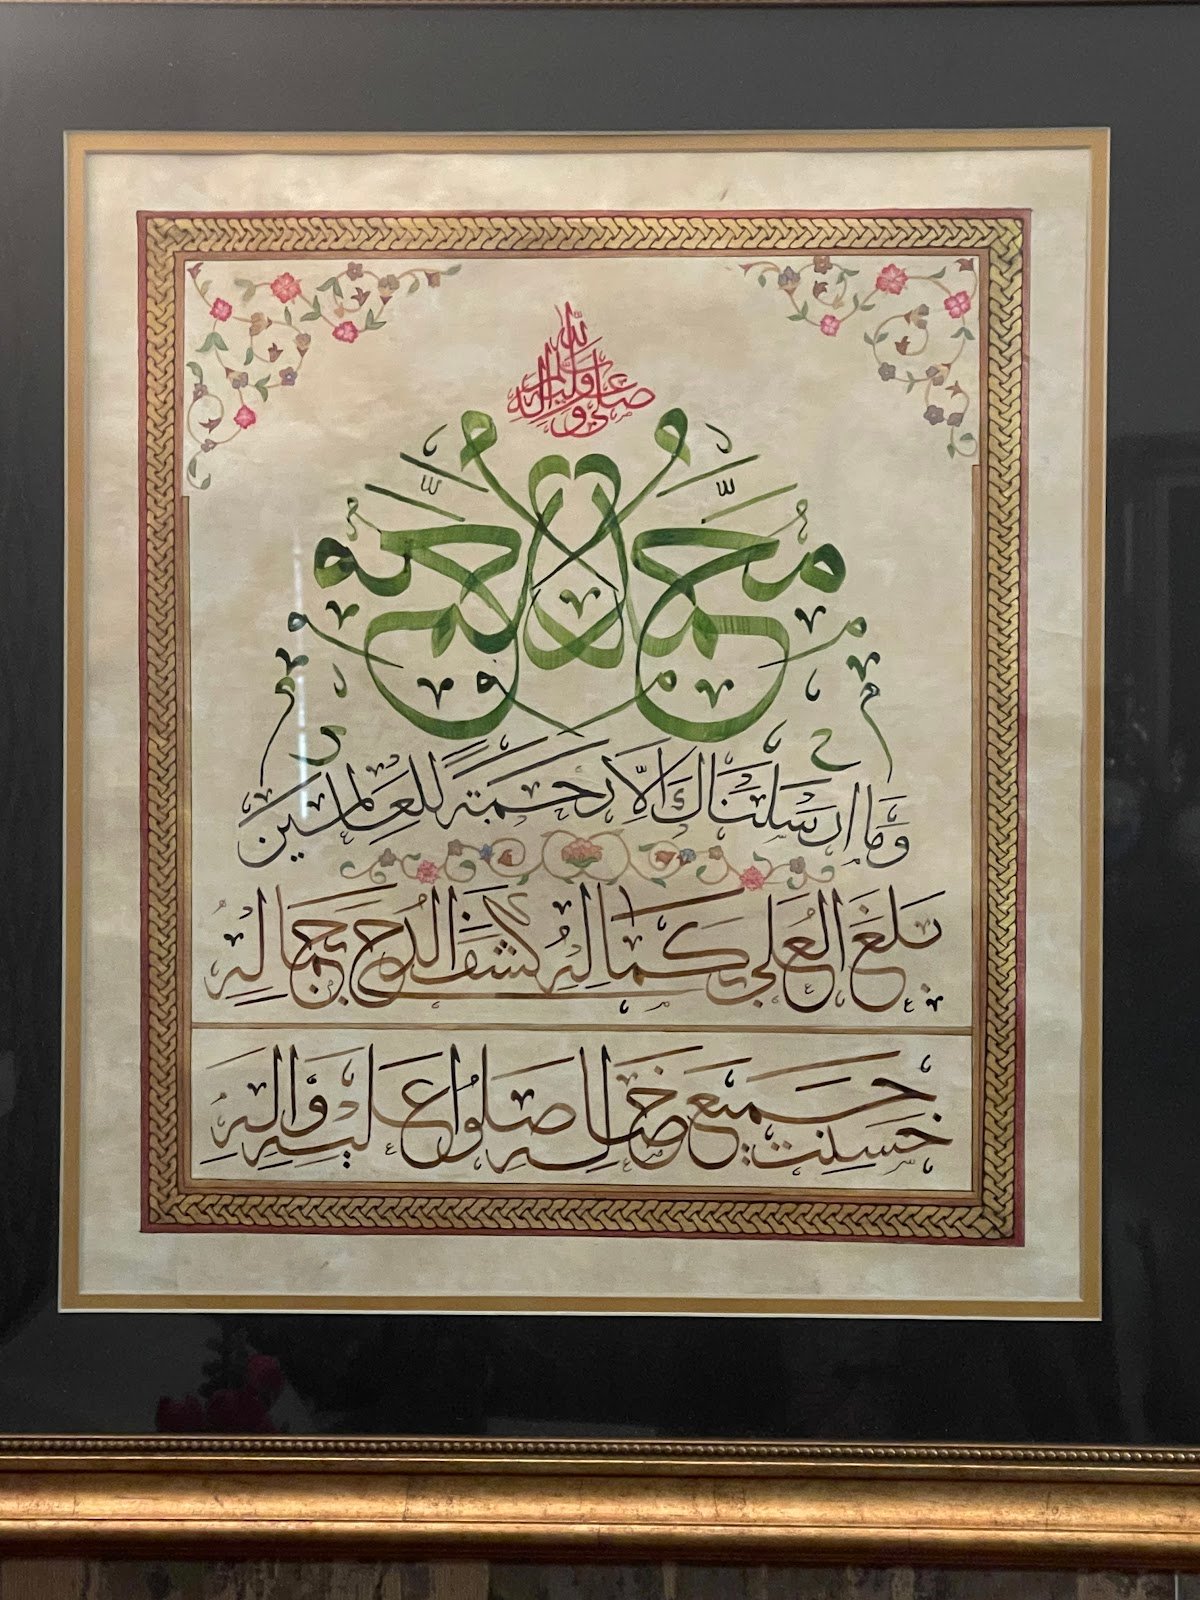 صلى الله عليه وآله وسلم
محمد محمد
وَمَا اَرْسَلْنَاكَ اِلَّا رَحْمَةً لِلْعَالَمِينَ
بَلَغَ الْعُلَى بِكَمَالِهِ كَشَفَ الدُّجَى بِجَمَالِهِ
حَسُنَتْ جَمِيعُ خِصَالِهِ صَلُّوا عَلَيْهِ وَآلِهِ